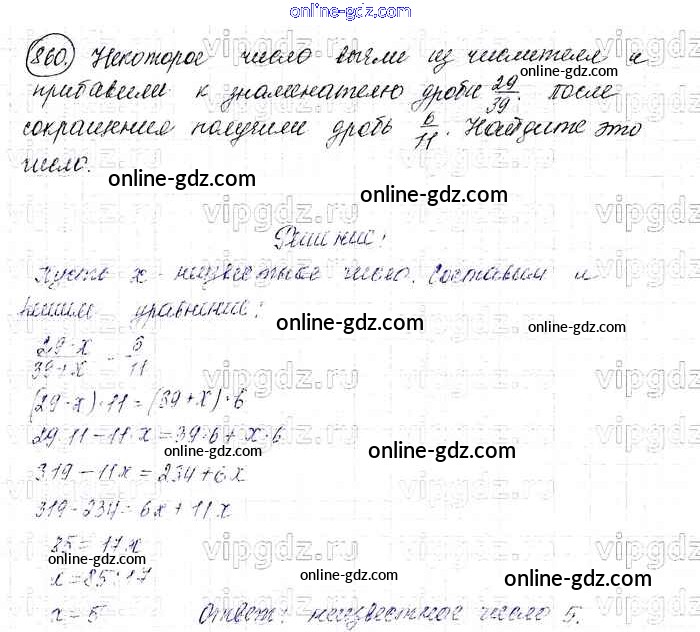 online-gdz.com
860. Некоторое число вычли из числителя и
прибавили к знаменателю дроби 29/39. После
сокращения получили дробь 6/11. Найдите это
число.
online-gdz.com
online-gdz.com
Решение:
Пусть x - неизвестное число. Составим и
решим уравнение:
online-gdz.com
online-gdz.com
(29-x)/(39+x) = 6/11
(29-x)·11=(39+x)·6
29·11-11·x=39·6+x·6
online-gdz.com
online-gdz.com
319-11x=234+6x
319-234=6x+11x
85=17x
online-gdz.com
x=85:17
online-gdz.com
online-gdz.com
x=5 Ответ: неизвестное число 5.
vipgdz.ru